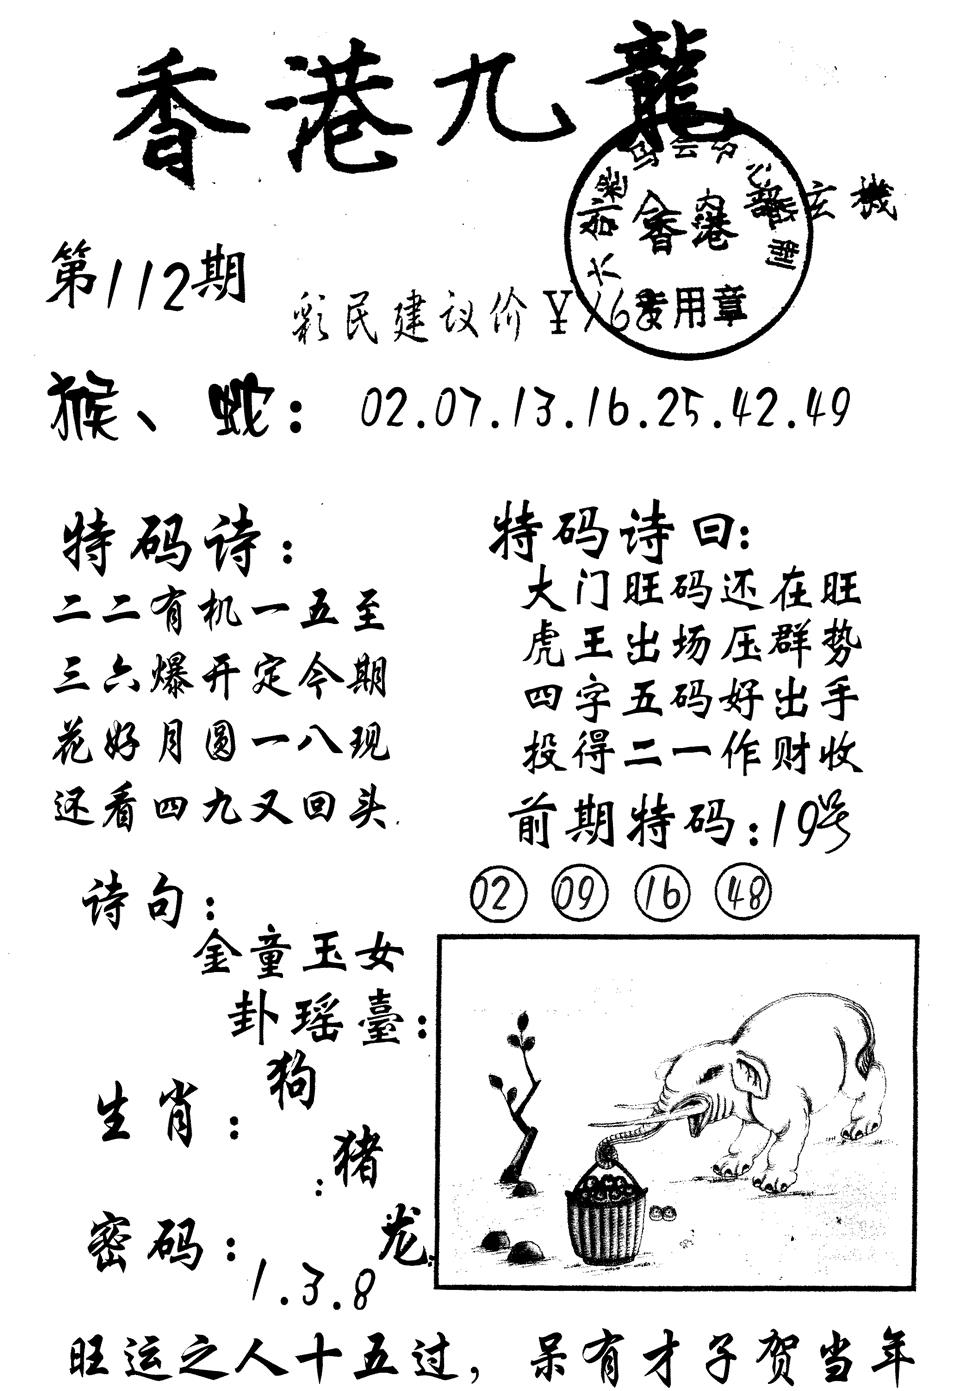 香港九龍
香港
专用章
玄機
第112期
彩民建议价¥168
猴、蛇：02.07.13.16.25.42.49
特码诗：
二二有机一五至
三六爆开定今期
花好月圆一八现
还看四九又回头
特码诗曰：
大门旺码还在旺
虎王出场压群势
四字五码好出手
投得二一作财收
前期特码：19号
02 09 16 48
诗句：
金童玉女
卦瑶臺：
生肖：
狗
：猪
龙
密码：
1.3.8
旺运之人十五过，呆有才子贺当年